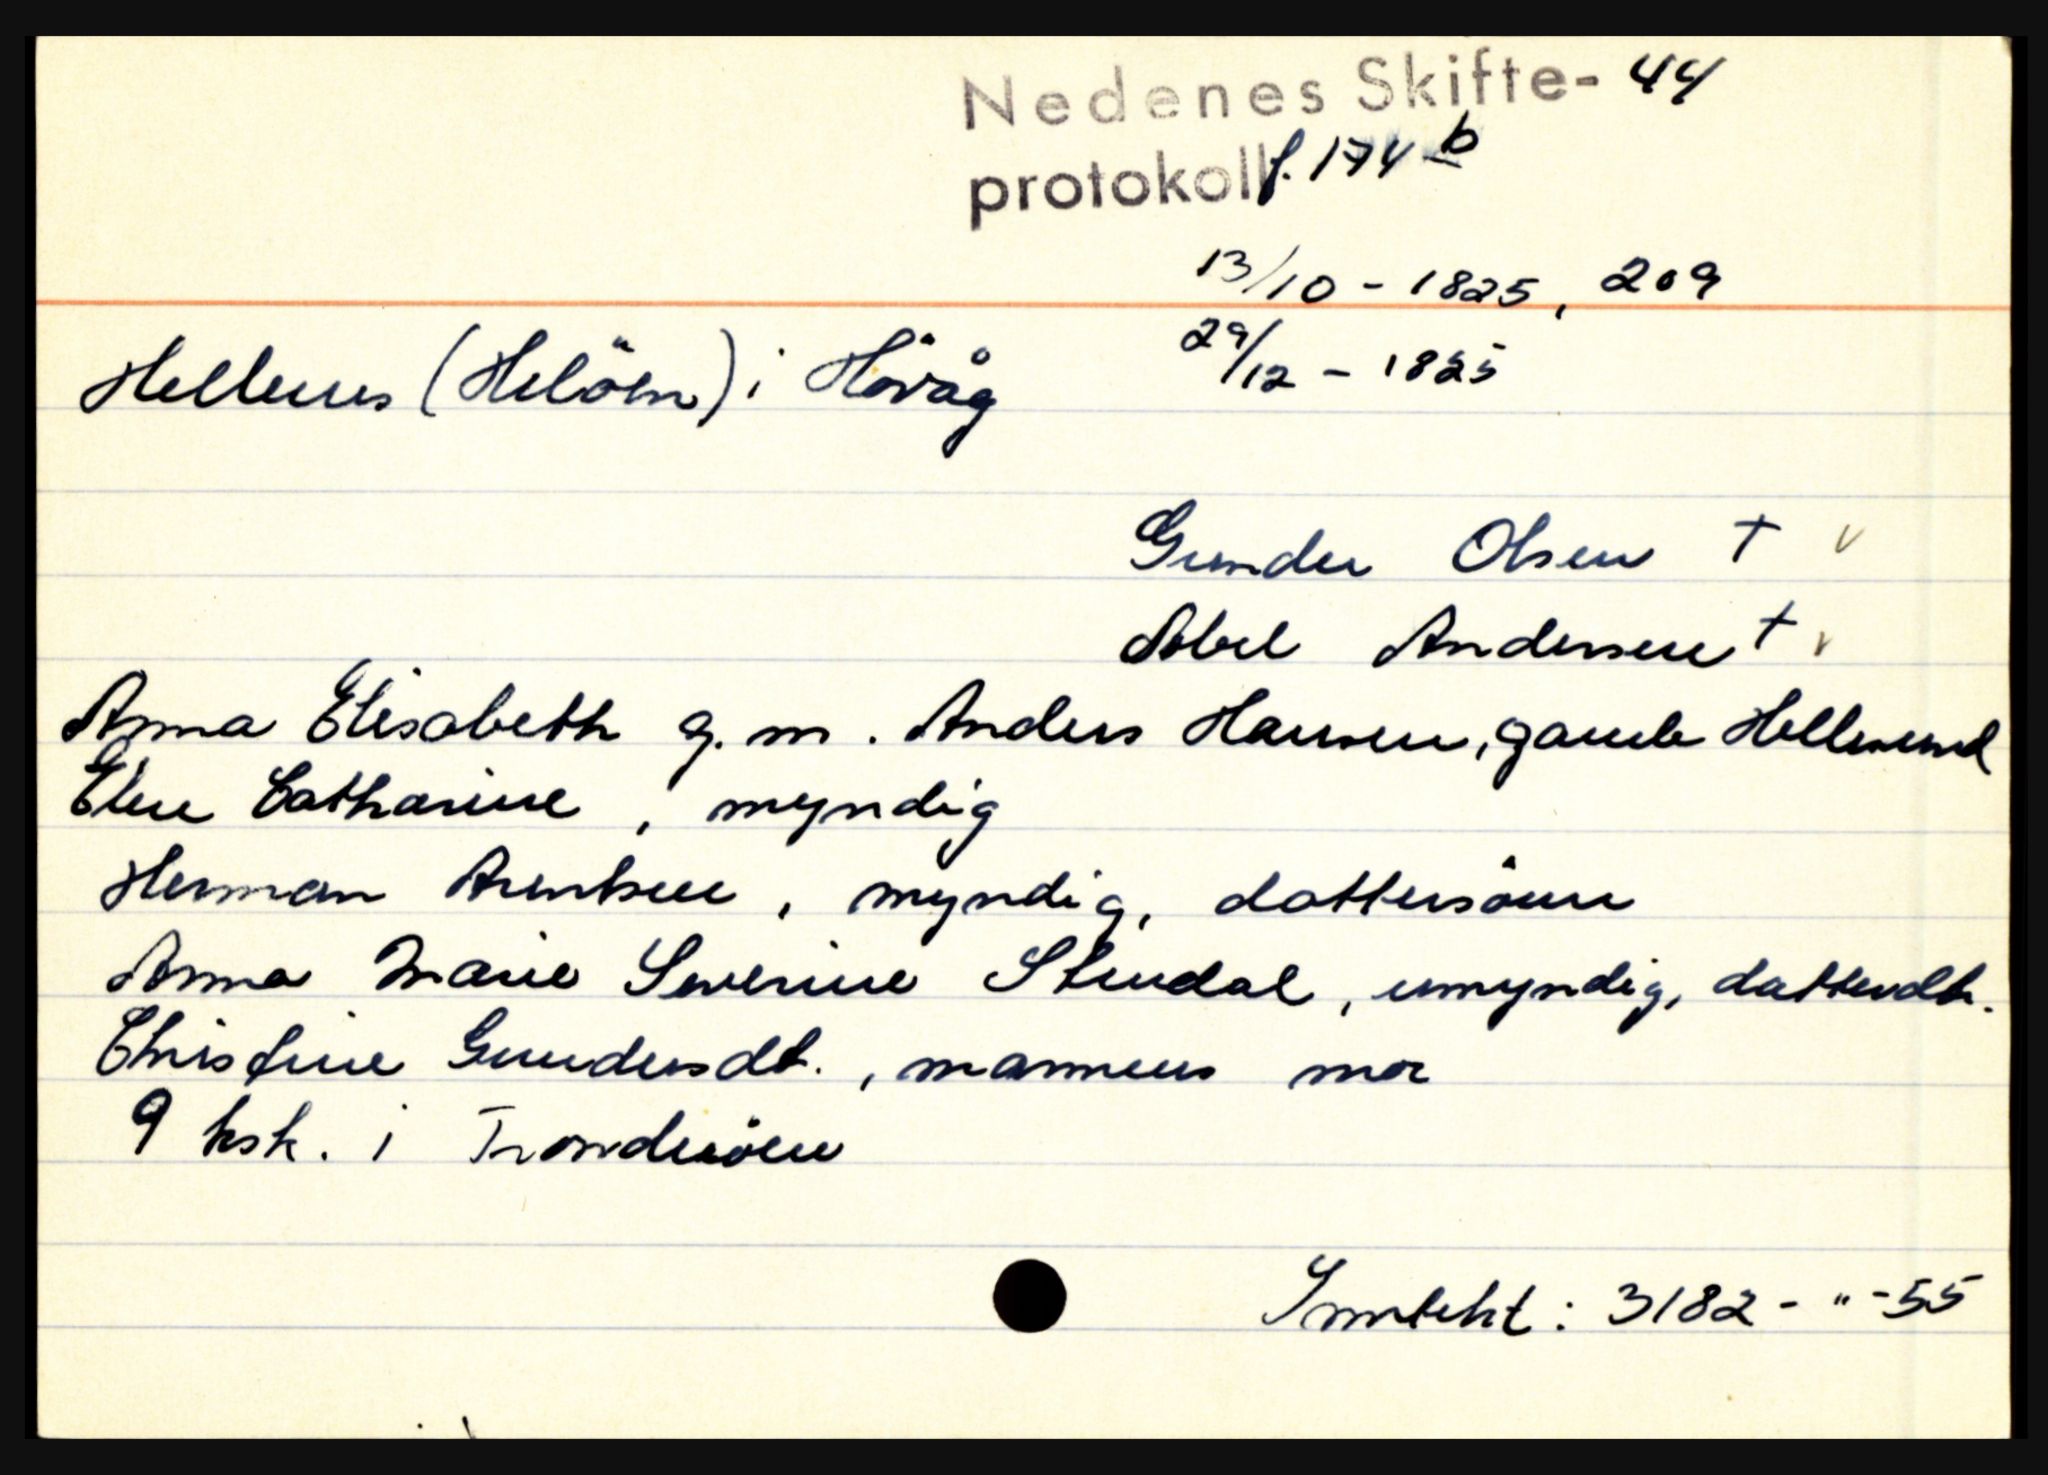 Nedenes Skifte- 44
protokoll f. 174 b
13/10 - 1825, 209
29/12 - 1825
Hellenes (Helöen) i Hövåg
Gunder Olsen +
Abel Andersen +
Anna Elisabeth g. m. Anders Hansen, gamle Hellesund
Elen Catharine, myndig
Herman Arentsen, myndig, dattersönn
Anna Marie Severine Stendal, umyndig, datterdtr.
Christine Gundersdt., mannens mor
9 ksk. i Trondeöen
Inntekt: 3182 - " - 55